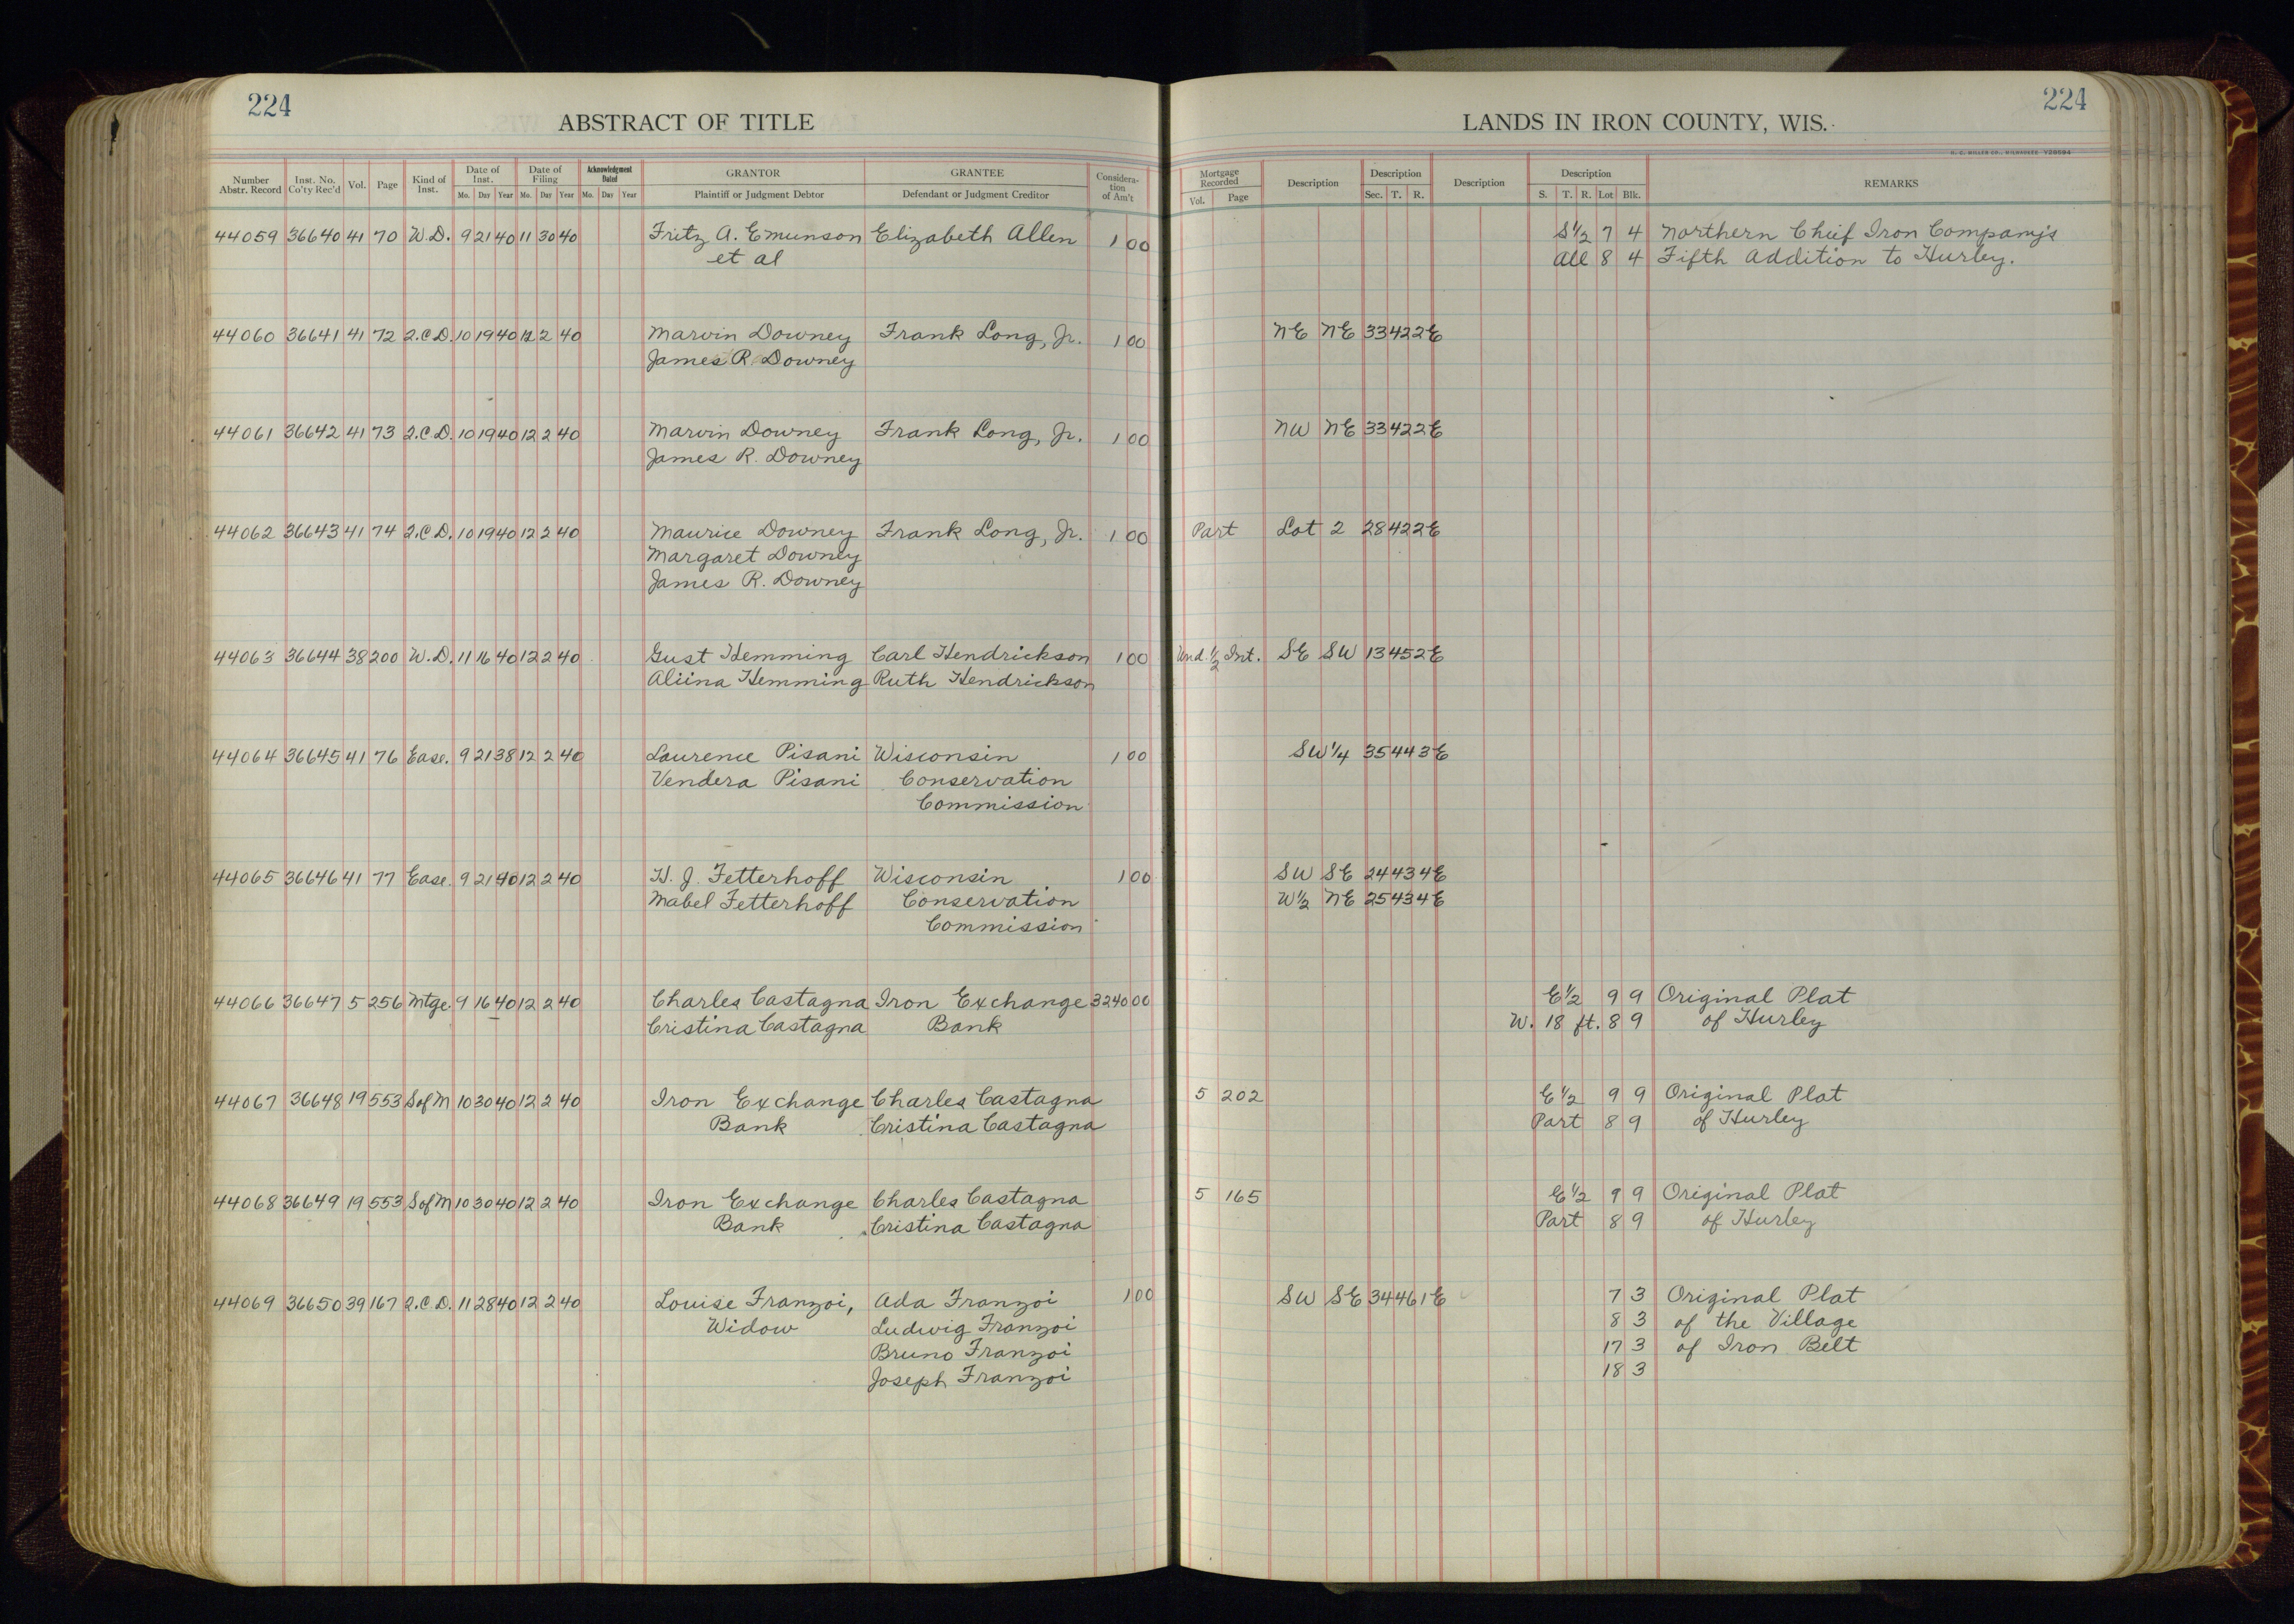 224
ABSTRACT OF TITLE
LANDS IN IRON COUNTY, WIS.
224
H. C. MILLER CO., MILWAUKEE Y28594
Number Abstr. Record | Inst. No. Co'ty Rec'd | Vol. | Page | Kind of Inst. | Date of Inst. Mo. Day Year | Date of Filing Mo. Day Year | Acknowledgment Dated Mo. Day Year | GRANTOR Plaintiff or Judgment Debtor | GRANTEE Defendant or Judgment Creditor | Consideration of Am't | Mortgage Recorded Vol. Page | Description | Description Sec. T. R. | Description | Description S. T. R. Lot Blk. | REMARKS
44059 36640 41 70 W.D. 9 21 40 11 30 40 Fritz A. Emunson Elizabeth Allen 1 00 S½ 7 4 Northern Chief Iron Company's
et al All 8 4 Fifth Addition to Hurley.
44060 36641 41 72 Q.C.D. 10 19 40 12 2 40 Marvin Downey Frank Long, Jr. 1 00 NE NE 33 42 2E
James R. Downey
44061 36642 41 73 Q.C.D. 10 19 40 12 2 40 Marvin Downey Frank Long, Jr. 1 00 NW NE 33 42 2E
James R. Downey
44062 36643 41 74 Q.C.D. 10 19 40 12 2 40 Maurice Downey Frank Long, Jr. 1 00 Part Lot 2 28 42 2E
Margaret Downey
James R. Downey
44063 36644 38 200 W.D. 11 16 40 12 2 40 Gust Hemming Carl Hendrickson 1 00 Und. ½ Int. SE SW 13 45 2E
Aliina Hemming Ruth Hendrickson
44064 36645 41 76 Ease. 9 21 38 12 2 40 Laurence Pisani Wisconsin 1 00 SW¼ 35 44 3E
Vendera Pisani Conservation
Commission
44065 36646 41 77 Ease. 9 21 40 12 2 40 H. J. Fetterhoff Wisconsin 1 00 SW SE 24 43 4E
Mabel Fetterhoff Conservation W½ NE 25 43 4E
Commission
44066 36647 5 256 Mtge. 9 16 40 12 2 40 Charles Castagna Iron Exchange 3240 00 E½ 9 9 Original Plat
Cristina Castagna Bank W. 18 ft. 8 9 of Hurley
44067 36648 19 553 S of M 10 30 40 12 2 40 Iron Exchange Charles Castagna 5 202 E½ 9 9 Original Plat
Bank Cristina Castagna Part 8 9 of Hurley
44068 36649 19 553 S of M 10 30 40 12 2 40 Iron Exchange Charles Castagna 5 165 E½ 9 9 Original Plat
Bank Cristina Castagna Part 8 9 of Hurley
44069 36650 39 167 Q.C.D. 11 28 40 12 2 40 Louise Franzoi, Ada Franzoi 1 00 SW SE 34 46 1E 7 3 Original Plat
Widow Ludwig Franzoi 8 3 of the Village
Bruno Franzoi 17 3 of Iron Belt
Joseph Franzoi 18 3